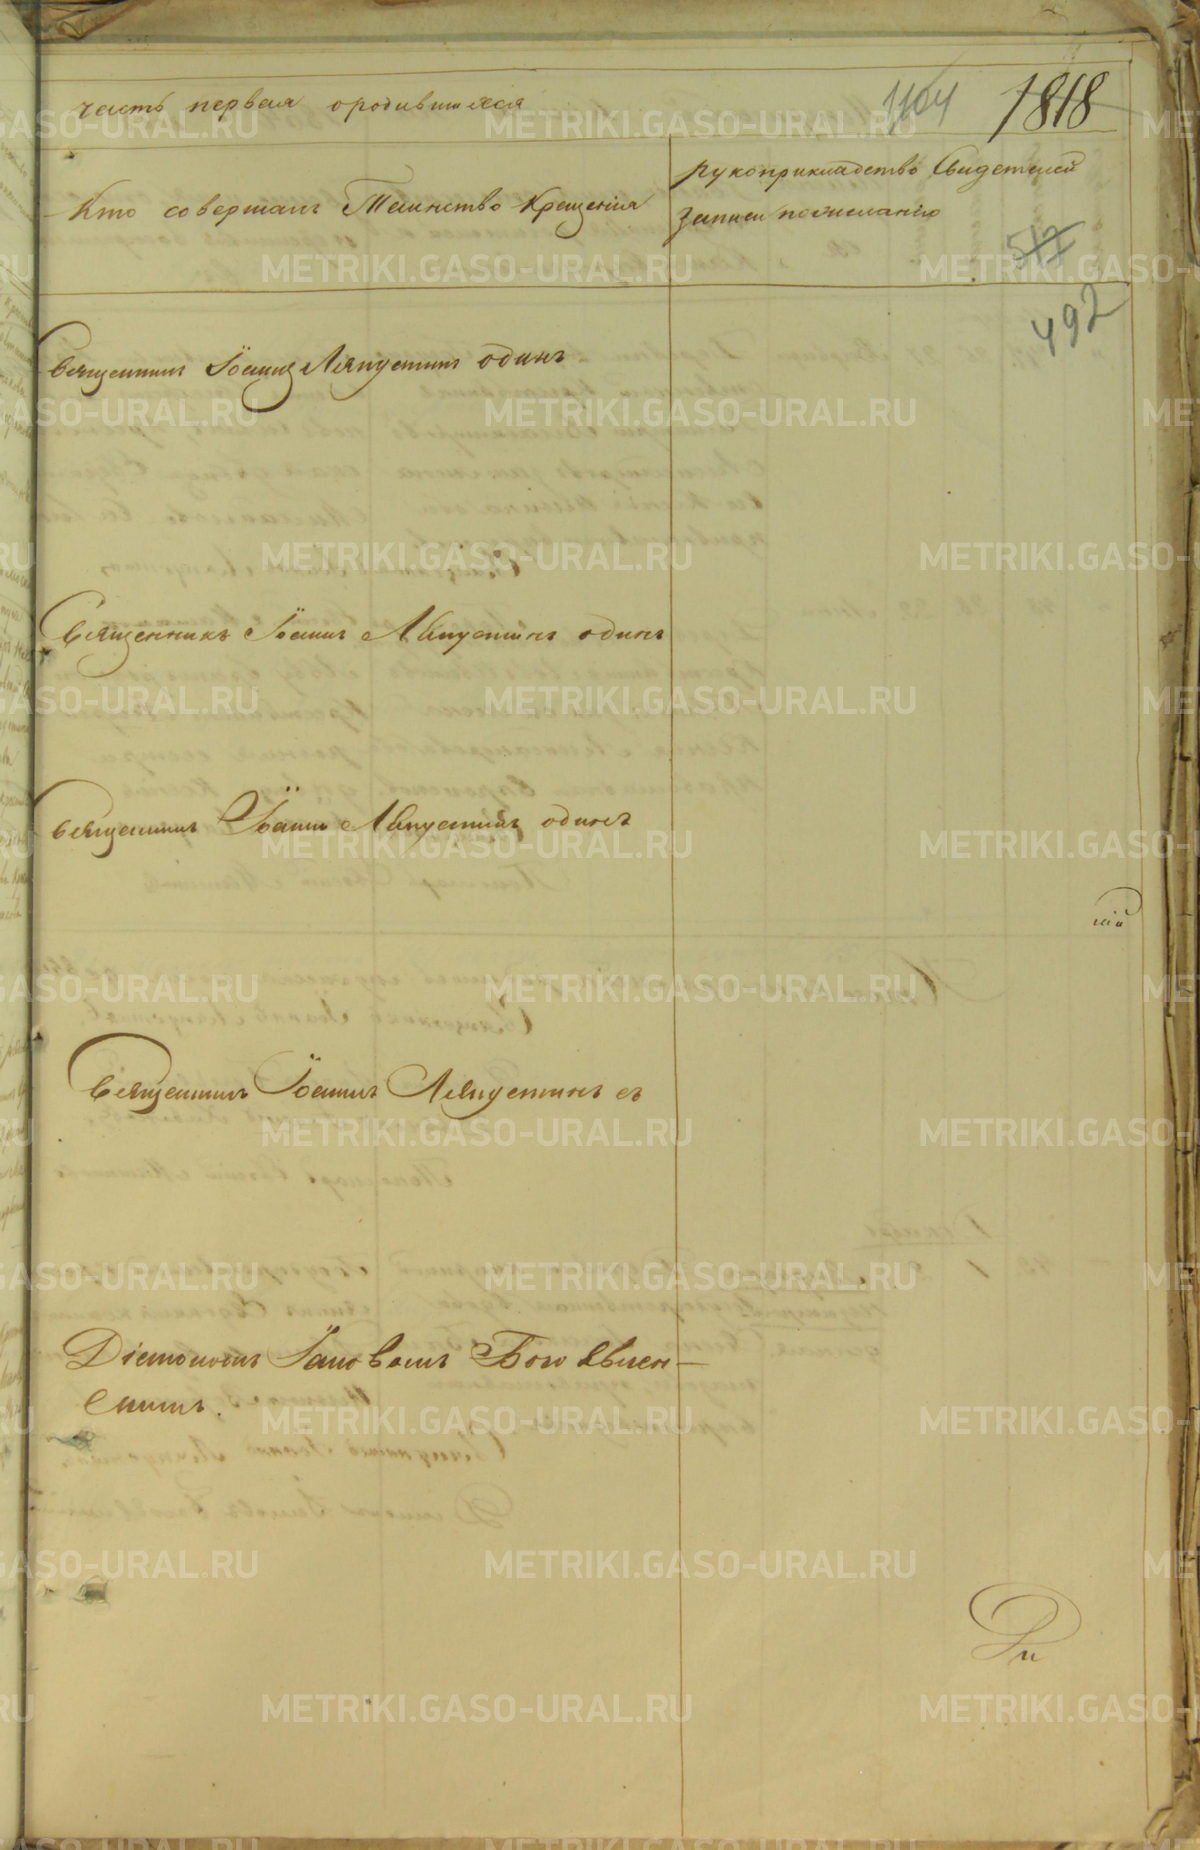 часть первая ородившихся
1104 1818
Кто совершалъ Таинство Крещенія
рукоприкладство Свидетелей
записи пожеланію
517
492
Священникъ Іоаннъ Ляпустинъ одинъ
Священникъ Іоаннъ Ляпустинъ одинъ
Священникъ Іоаннъ Ляпустинъ одинъ
Священникъ Іоаннъ Ляпустинъ съ
Діакономъ Іаковомъ Богоявлен-
скимъ.